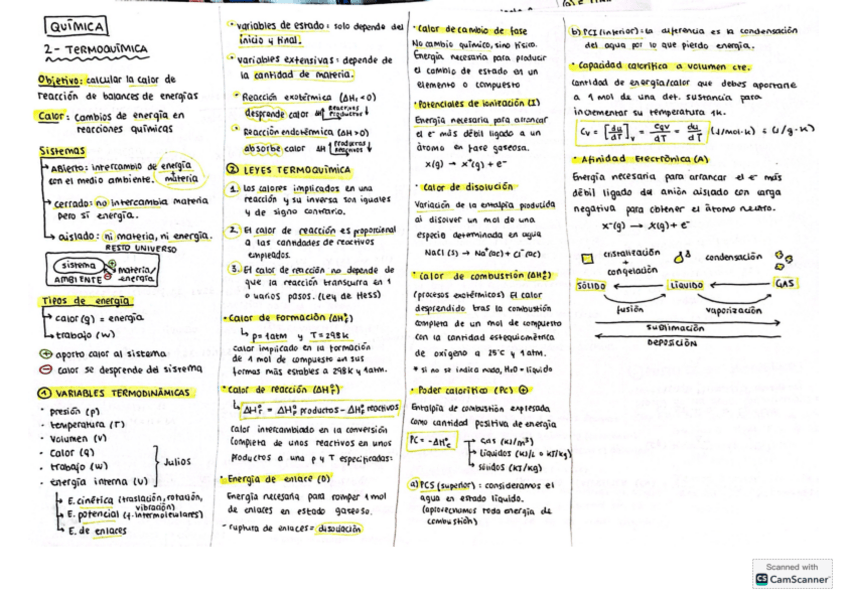 QUÍMICA
2- TERMOQUÍMICA
Objetivo: calcular la calor de
reacción de balances de energías
Calor: cambios de energía en
reacciones químicas
Sistemas
Abierto: intercambio de energía
+ materia
con el medio ambiente.
cerrado: no intercambia materia
pero sí energía.
aislado: ni materia, ni energía.
RESTO UNIVERSO
sistema
materia/
energía
AMBIENTE
Tipos de energía
calor (q) = energía
trabajo (w)
⊕ aporto calor al sistema
⊖ calor se desprende del sistema
① VARIABLES TERMODINÁMICAS
· presión (p)
· temperatura (T)
· volumen (V)
· calor (q)
· trabajo (w)
· energía interna (U)
Julios
E. cinética (traslación, rotación,
vibración)
E. potencial (f. intermoleculares)
E. de enlaces
· variables de estado: solo depende del
inicio y final.
· variables extensivas: depende de
la cantidad de materia.
· Reacción exotérmica (ΔH<0)
desprende calor ΔH Reactivos Productos
· Reacción endotérmica (ΔH>0)
absorbe calor ΔH Productos Reactivos
② LEYES TERMOQUÍMICA
1. Los calores implicados en una
reacción y su inversa son iguales
y de signo contrario.
2. El calor de reacción es proporcional
a las cantidades de reactivos
empleados.
3. El calor de reacción no depende de
que la reacción transcurra en 1
o varios pasos. (Ley de Hess)
· Calor de Formación (ΔHf°)
p=1atm y T=298K
calor implicado en la formación
de 1 mol de compuesto en sus
formas más estables a 298k y 1atm.
· Calor de reacción (ΔHr°)
ΔHr° = ΔHf° productos - ΔHf° reactivos
calor intercambiado en la conversión
completa de unos reactivos en unos
productos a una p y T especificadas:
· Energía de enlace (D)
Energía necesaria para romper 1 mol
de enlaces en estado gaseoso.
- ruptura de enlaces = disociación
· Calor de cambio de fase
No cambio químico, sino físico.
Energía necesaria para producir
el cambio de estado en un
elemento o compuesto
· Potenciales de ionización (I)
Energía necesaria para arrancar
el e⁻ más débil ligado a un
átomo en fase gaseosa.
X(g) → X⁺(g) + e⁻
· Calor de disolución
Variación de la entalpía producida
al disolver un mol de una
especie determinada en agua
NaCl (s) → Na⁺(ac) + Cl⁻(ac)
· Calor de combustión (ΔHc°)
(procesos exotérmicos) El calor
desprendido tras la combustión
completa de un mol de compuesto
con la cantidad estequiométrica
de oxígeno a 25°C y 1atm.
* si no se indica nada, H₂O = líquido
· Poder calorífico (PC) ⊕
Entalpía de combustión expresada
como cantidad positiva de energía
PC = -ΔHc°
Gas (kJ/m³)
Líquidos (kJ/L o kJ/kg)
Sólidos (kJ/kg)
a) PCS (superior): consideramos el
agua en estado líquido.
(aprovechamos toda energía de
combustión)
b) PCI (inferior): la diferencia es la condensación
del agua por lo que pierdo energía.
· Capacidad calorífica a volumen cte.
cantidad de energía/calor que debes aportarle
a 1 mol de una det. sustancia para
incrementar su temperatura 1K.
Cv = [du/dT]v = dqv/dT = du/dT (J/mol·k) ó (J/g·k)
· Afinidad Electrónica (A)
Energía necesaria para arrancar el e⁻ más
débil ligado del anión aislado con carga
negativa para obtener el átomo neutro.
X⁻(g) → X(g) + e⁻
cristalización
+
congelación
condensación
SÓLIDO
LÍQUIDO
GAS
fusión
vaporización
SUBLIMACIÓN
DEPOSICIÓN
Scanned with
CS CamScanner